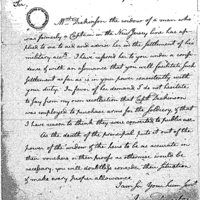 Sir,
Mrs. Dickinson the widow of a man who
was formerly a Captain in the New Jersey line has ap-
plied to me to aid and advise her in the settlement of his
military acct. I have refered her to you under a confi-
dence of with an assurance that you will facilitate such
settlement as far as is in your power consistently with
your duty. In favor of her demand I do not hesitate
to say from my own recollection that Capt. Dickinson
was employed to purchase arms for the soldiery, & that
I have reason to think they were converted to public use.
As the death of the principal puts it out of the
power of the widow of the hero to be as accurate in
their vouchers or their proofs as otherwise would be
necessary, you will doubtless consider their situation
& make every proper allowance.
I am Sir Your hum Servt